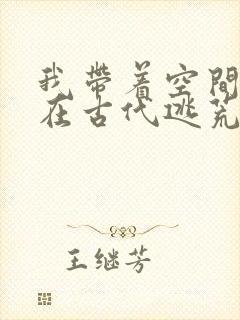 我帶着空間
在古代逃荒
王继芳